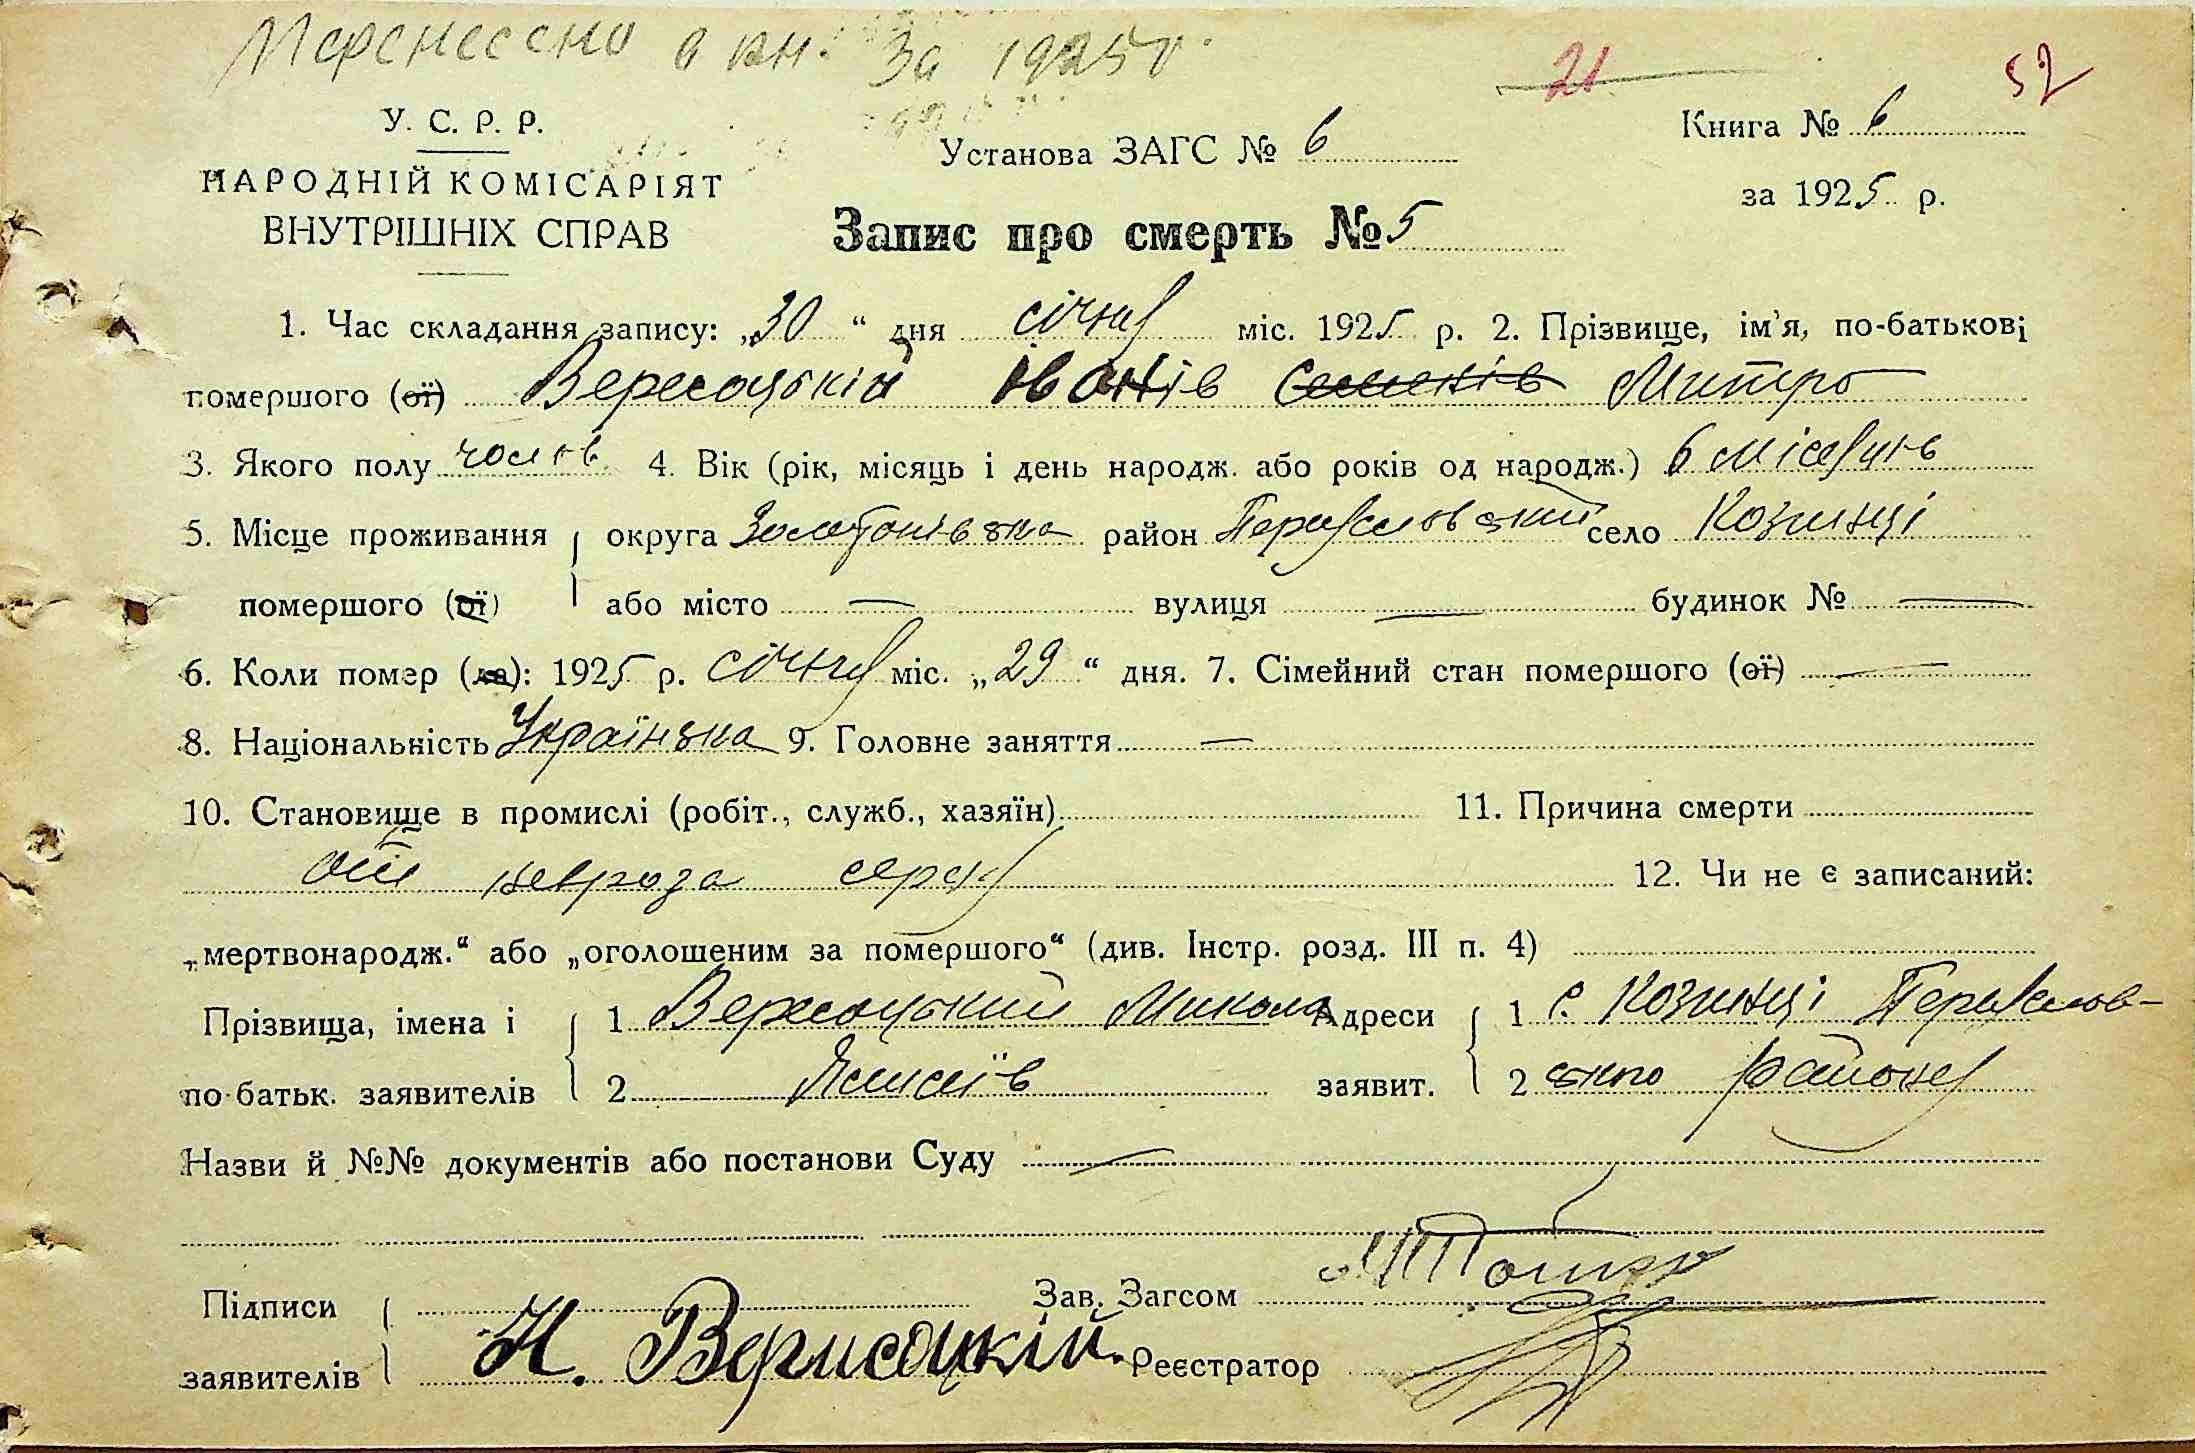 Перенесено в кн. за 1925 г.
21
52
У. С. Р. Р.
НАРОДНІЙ КОМІСАРІЯТ
ВНУТРІШНІХ СПРАВ
Установа ЗАГС № 6
Книга № 6
за 1925 р.
Запис про смерть № 5
1. Час складання запису: „30“ дня січня міс. 1925 р. 2. Прізвище, ім'я, по-батькові
помершого (ої) Вересоцький Іванів Семенів Митро
3. Якого полу чолов. 4. Вік (рік, місяць і день народж. або років од народж.) 6 місяців
5. Місце проживання округа Золотонівська район Переяславський село Козинці
помершого (ої) або місто — вулиця — будинок № —
6. Коли помер (ла): 1925 р. січня міс. „29“ дня. 7. Сімейний стан помершого (ої) —
8. Національність Українська 9. Головне заняття —
10. Становище в промислі (робіт., служб., хазяїн) 11. Причина смерти
від невроза серця 12. Чи не є записаний:
„мертвонародж.“ або „оголошеним за помершого“ (див. Інстр. розд. III п. 4)
Прізвища, імена і 1 Вересоцький Микола Адреси 1 с. Козинці Переяслов-
по батьк. заявителів 2 заявит. 2 ського району
Назви й №№ документів або постанови Суду —
Підписи Зав. Загсом
заявителів Н. Верисоцкій. Реєстратор